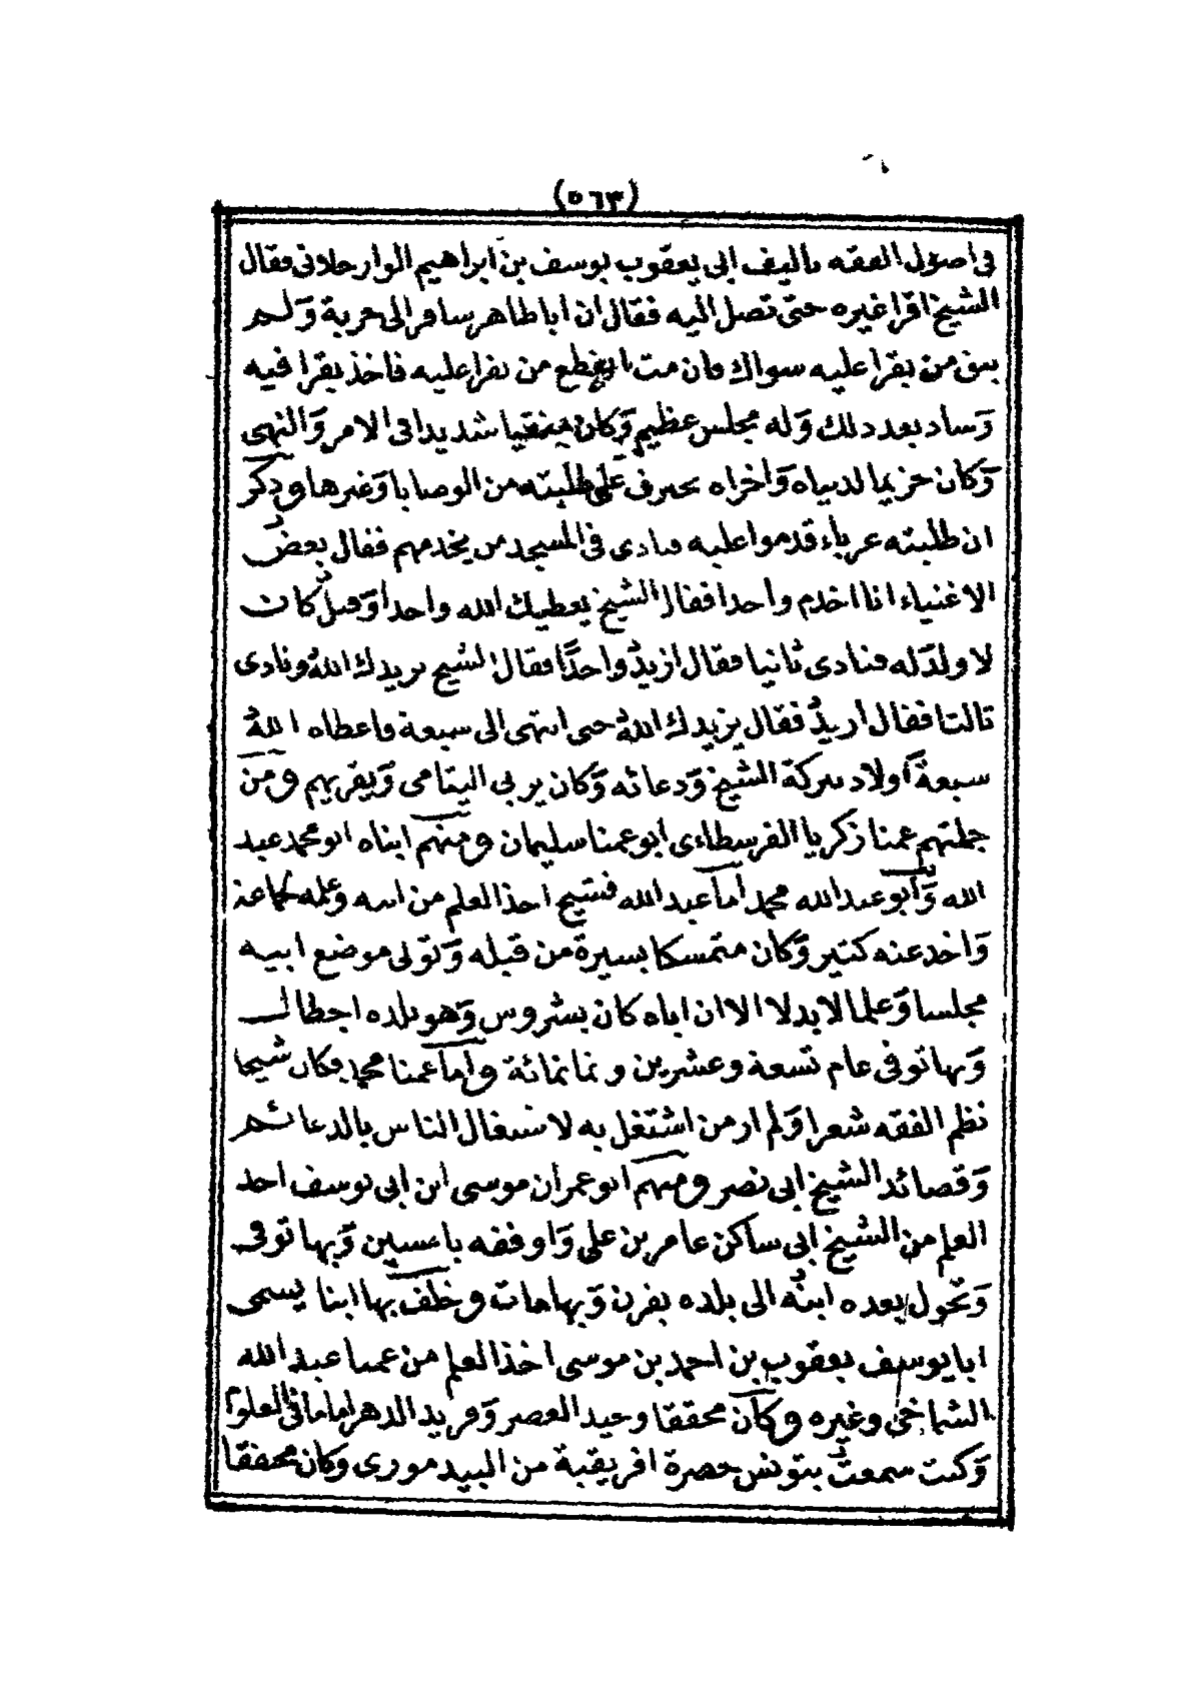 (٥٦٣)
في اصول الفقه تاليف ابي يعقوب يوسف بن ابراهيم الوارجلاني فقال
الشيخ اقرا غيره حتى تصل اليه فقال ان ابا طاهر سافر الى جربة وَلم
يبق من يقرا عليه سواك وان مت انقطع من يقرا عليه فاخذ يقرا فيه
وَساد بعد ذلك وَله مجلس عظيم وَكان متقيا شديدا في الامر وَالنهى
وَكان حزيما لدنياه وَاخراه يصرف على طلبته من الوصايا وَغيرها وذكر
ان طلبته غرباء قدموا عليه فنادى في المسجد من يخدمهم فقال بعضُ
الاغنياء انا اخدم واحدا فقال الشيخ يعطيك الله واحدا وَقيل كان
لا ولدَ له فنادى ثانيا فقال ازيدُ واحدًا فقال الشيخ يزيدك اللهُ ونادى
ثالثا فقال ازيدُ فقال يزيدك اللهُ حتى انتهى الى سبعة فاعطاه اللهُ
سبعةَ اولاد ببركة الشيخ وَدعائه وَكان يربي اليتامى وَيقريهم ومن
جملتهم عمنا زكريا الفرسطاءى ابو عمنا سليمان ومنهم ابناه ابو محمد عبد
الله وَابو عبد الله محمد اما عبد الله فشيخ اخذ العلم من ابيه وَعلمه لجماعة
وَاخذ عنه كثير وَكان متمسكا بسيرة من قبله وَتولى موضع ابيه
مجلسا وَعلما لا بدلا الا ان اباه كان بشروس وَهو بلده اجطال
وَبها توفي عام تسعة وعشرين وثمانمائة واما عمنا محمد فكان شيخا
نظم الفقه شعرا وَلم ار من اشتغل به لاشتغال الناس بالدعائم
وَقصائد الشيخ ابي نصر ومنهم ابو عمران موسى ابن ابي يوسف اخذ
العلم من الشيخ ابي ساكن عامر بن علي وَاوقفه باغسين وَبها توفي
وَتحول بعده ابنُه الى بلده يفرن وَبها مات وخلف بها ابنا يسمى
ابا يوسف يعقوب بن احمد بن موسى اخذ العلم من عمنا عبد الله
الشماخي وغيره وكان محققا وحيد العصر وَفريد الدهر اماما في العلوم
وَكنت سمعت بتونس حضرة افريقية من البيدمورى وكان محققا